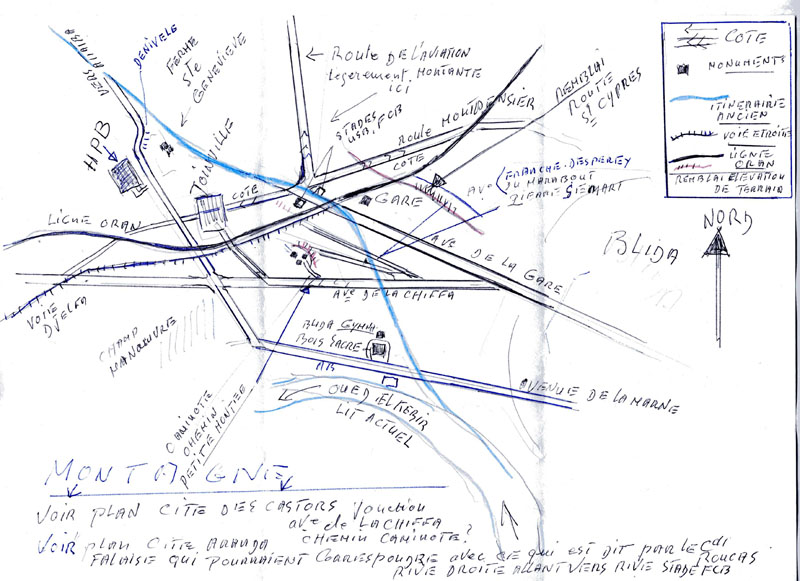 DENIVELE
FERME
Ste
GENEVIEVE
Route DE L'AVIATION
legerement MONTANTE
ICI
STADES
USB, FCB
Route MONTPENSIER
COTE
REMBLAI
ROUTE
St CYPRES
COTE
MONUMENTS
ITINERAIRIE
ANCIEN
VOIE ETROITE
LIGNE
ORAN
REMBLAI ELEVATION
DE TERRAIN
NORD
BLIDA
HPB
JOINVILLE
COTE
GARE
AVe
FRANCHE. DESPEREY
DU MARABOUT
PIERRE SEMART
LIGNE ORAN
AVE DE LA GARE
VOIE
DJELFA
AVe DE LA CHIFFA
CHAMP
MANŒUVRE
BLIDA Gymn.
BOIS SACRE
AVENUE DE LA MARNE
CAMINOTE
CHEMIN
PETITE MONTEE
OUED EL KEBIR
LIT ACTUEL
VOIR PLAN CITE DES CASTORS Jonction
ave de LACHIFFA
CHEMIN CAMINOTE?
VOIR PLAN CITE
FALAISE QUI POURRAIENT CORRESPONDRE avec CE qui EST DIT PAR LE Cdt
ROUCAS
RIVE DROITE ALLANT VERS RIVE STADE FCB